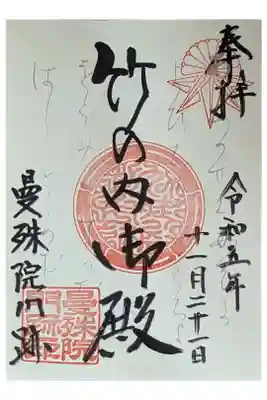 奉拝
令和五年
十一月二十一日
竹の内御殿
曼殊院門跡
曼殊院
門跡印